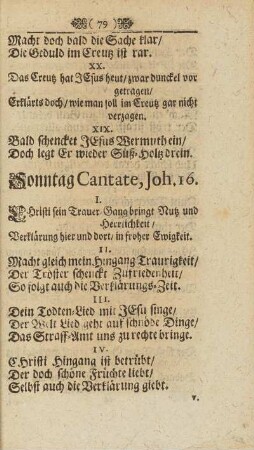 ( 79 )
Macht doch bald die Sache klar/
Die Gedult im Creutz ist rar.
XX.
Das Creutz hat JEsus heut/ zwar dunckel vor
getragen/
Erklärts doch/ wie man soll im Creutz gar nicht
verzagen.
XIX.
Bald schencket JEsus Wermuth ein/
Doch legt Er wieder Süß-Holtz drein.
Sonntag Cantate, Joh. 16.
I.
CHristi sein Trauer-Gang bringt Nutz und
Herrlichkeit/
Verklärung hier und dort/ in froher Ewigkeit.
II.
Macht gleich mein Hingang Traurigkeit/
Der Tröster schenckt Zufriedenheit/
So folgt auch die Verklärungs-Zeit.
III.
Dein Todten-Lied mit JESu singe/
Der Welt Lied geht auf schnöde Dinge/
Das Straff-Amt uns zu rechte bringe.
IV.
CHristi Hingang ist betrübt/
Der doch schöne Früchte liebt/
Selbst auch die Verklärung giebt.
V.